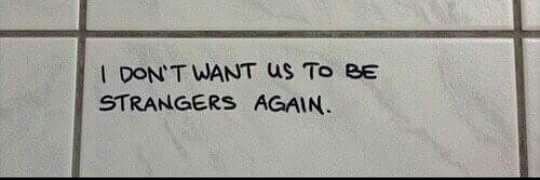 I DON'T WANT US TO BE
STRANGERS AGAIN.